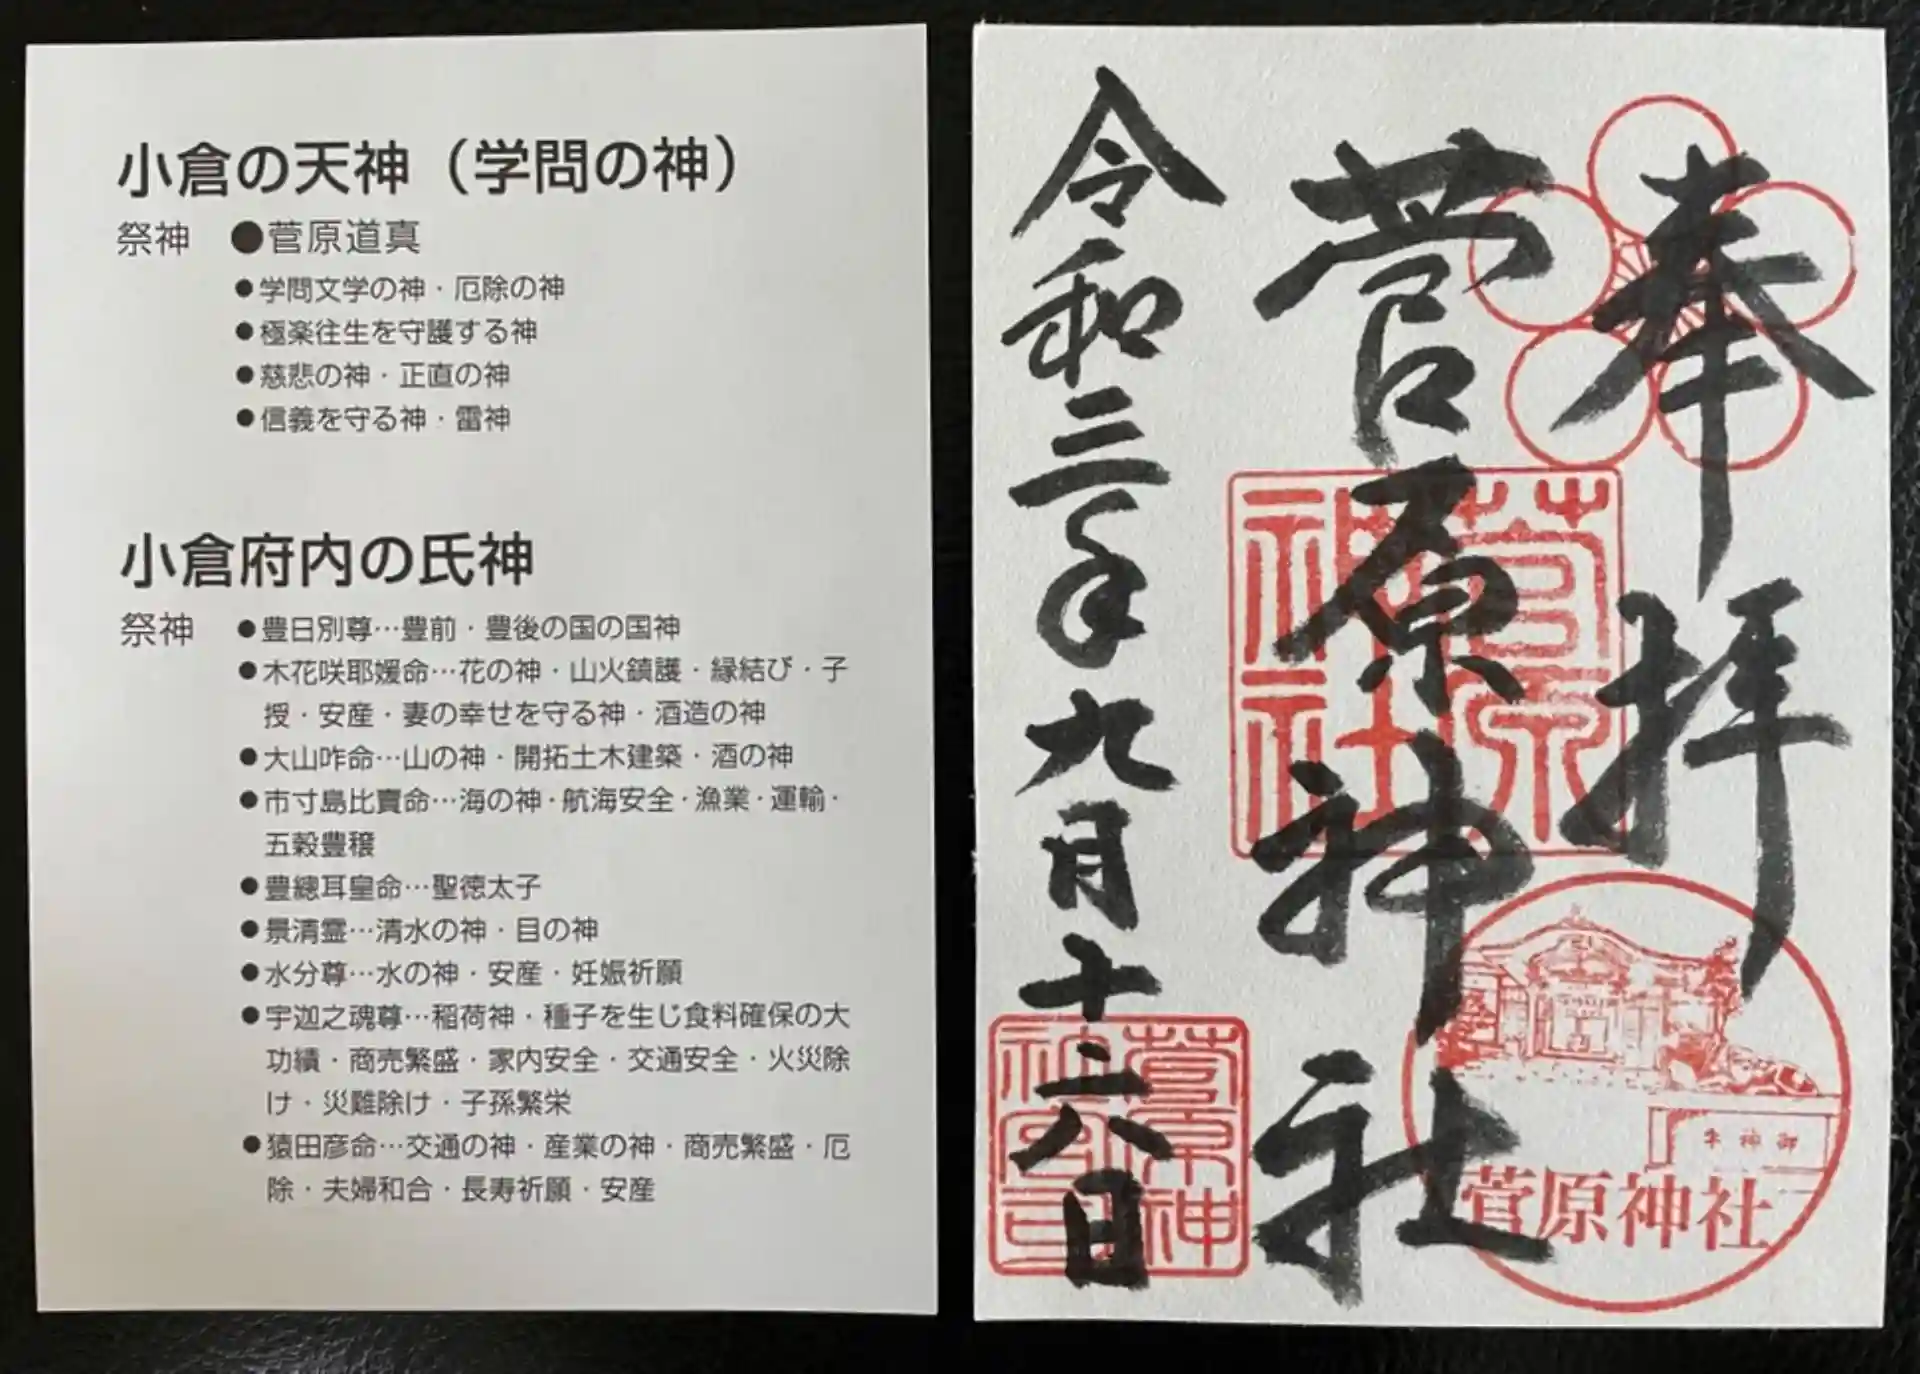 小倉の天神（学問の神）
祭神 ●菅原道真
●学問文学の神・厄除の神
●極楽往生を守護する神
●慈悲の神・正直の神
●信義を守る神・雷神
小倉府内の氏神
祭神 ●豊日別尊…豊前・豊後の国の国神
●木花咲耶媛命…花の神・山火鎮護・縁結び・子
授・安産・妻の幸せを守る神・酒造の神
●大山咋命…山の神・開拓土木建築・酒の神
●市寸島比賣命…海の神・航海安全・漁業・運輸・
五穀豊穣
●豊總耳皇命…聖徳太子
●景清霊…清水の神・目の神
●水分尊…水の神・安産・妊娠祈願
●宇迦之魂尊…稲荷神・種子を生じ食料確保の大
功績・商売繁盛・家内安全・交通安全・火災除
け・災難除け・子孫繁栄
●猿田彦命…交通の神・産業の神・商売繁盛・厄
除・夫婦和合・長寿祈願・安産
奉拝
菅原神社
令和三年九月十二八日
菅原神社
御神牛
菅原神社
菅原神社宮司